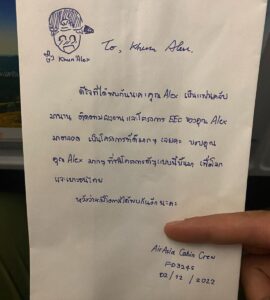 To, Khun Alex.
Khun Alex
ดีใจที่ได้พบกันนะคะคุณ Alex เป็นแฟนคลับ
มานาน ติดตามผลงานและโครงการ EEC ของคุณ Alex
มาตลอด เป็นโครงการที่ดีมากๆ เลยค่ะ ขอบคุณ
คุณ Alex มากๆ ที่ทำโครงการดีๆแบบนี้ขึ้นมา เพื่อโลก
และเยาวชนไทย
หวังว่าจะมีโอกาสได้พบกันอีกนะคะ
AirAsia Cabin Crew
FD3245
02/12/2022